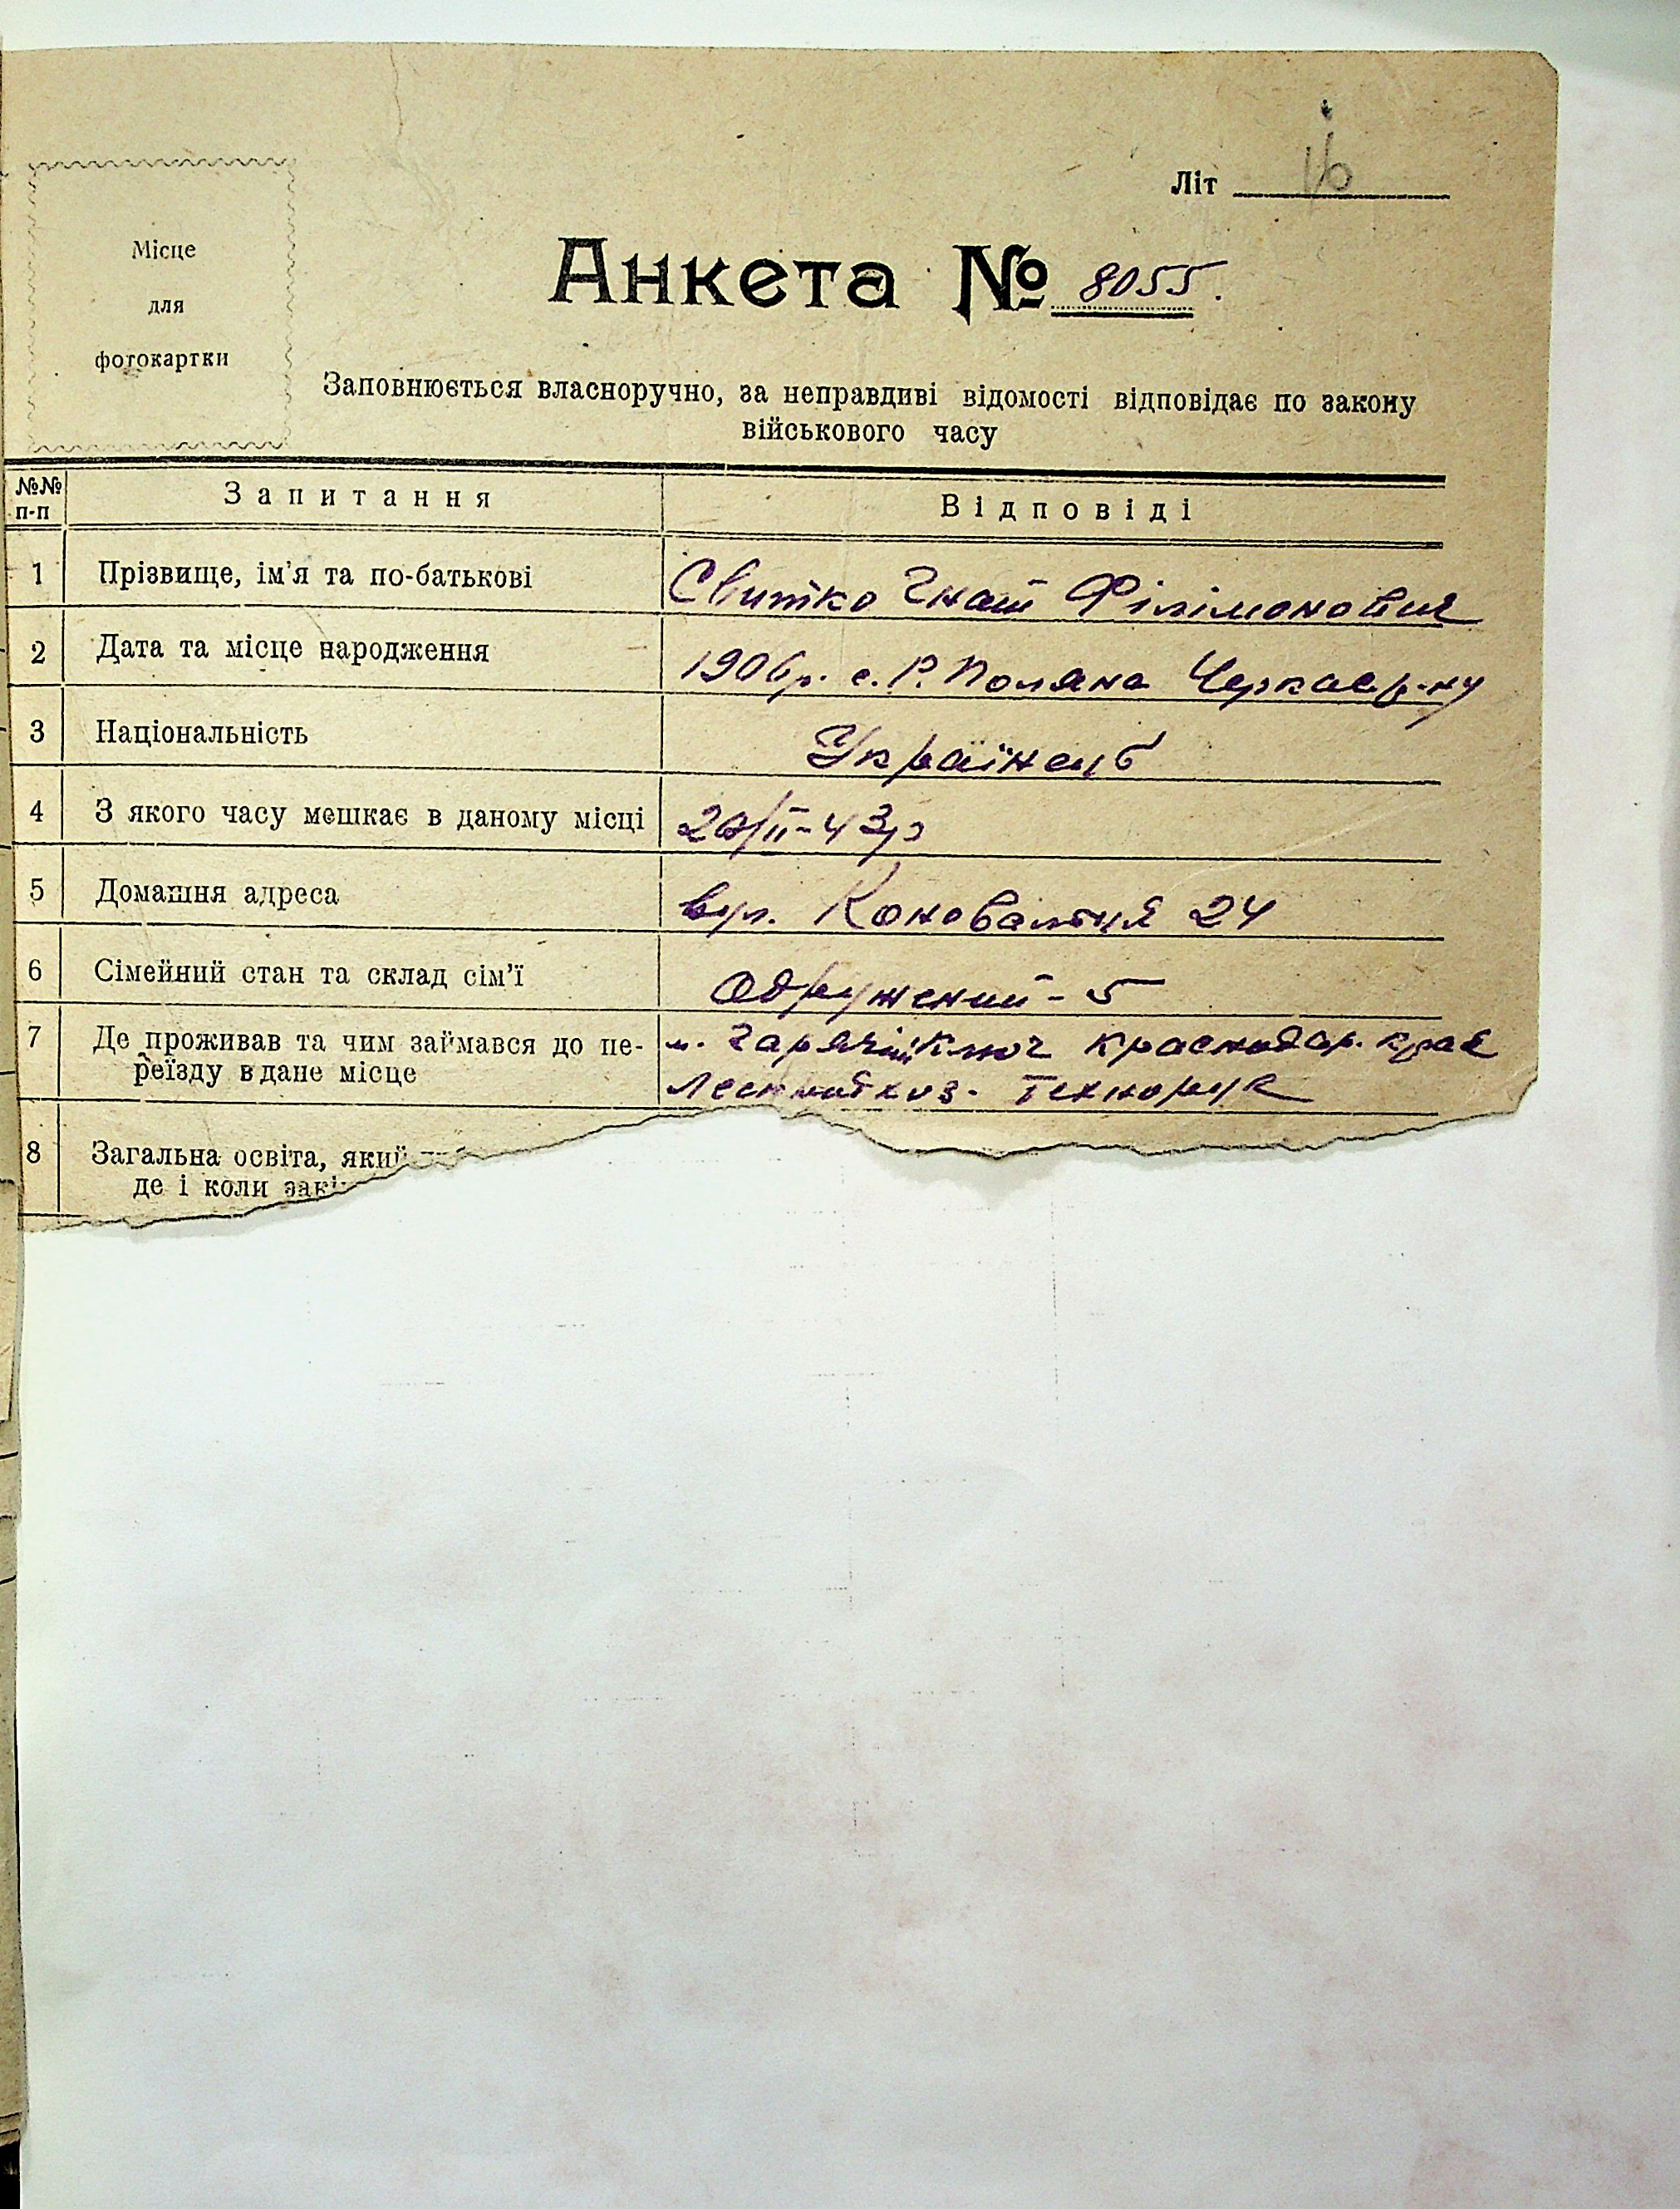 Літ
Місце
для
фотокартки
Анкета № 8055.
Заповнюється власноручно, за неправдиві відомості відповідає по закону
військового часу
№№ п-п Запитання Відповіді
1 Прізвище, ім'я та по-батькові Свитко Гнат Філімонович
2 Дата та місце народження 1906р. с. Р. Поляна Черкас р-ну
3 Національність Українець
4 З якого часу мешкає в даному місці 20/II-43р
5 Домашня адреса вул. Коновальця 24
6 Сімейний стан та склад сім'ї Одружений - 5
7 Де проживав та чим займався до пе- м. Гарячий Ключ Краснодар. края
реїзду в дане місце Технорук
8 Загальна освіта, який
де і коли